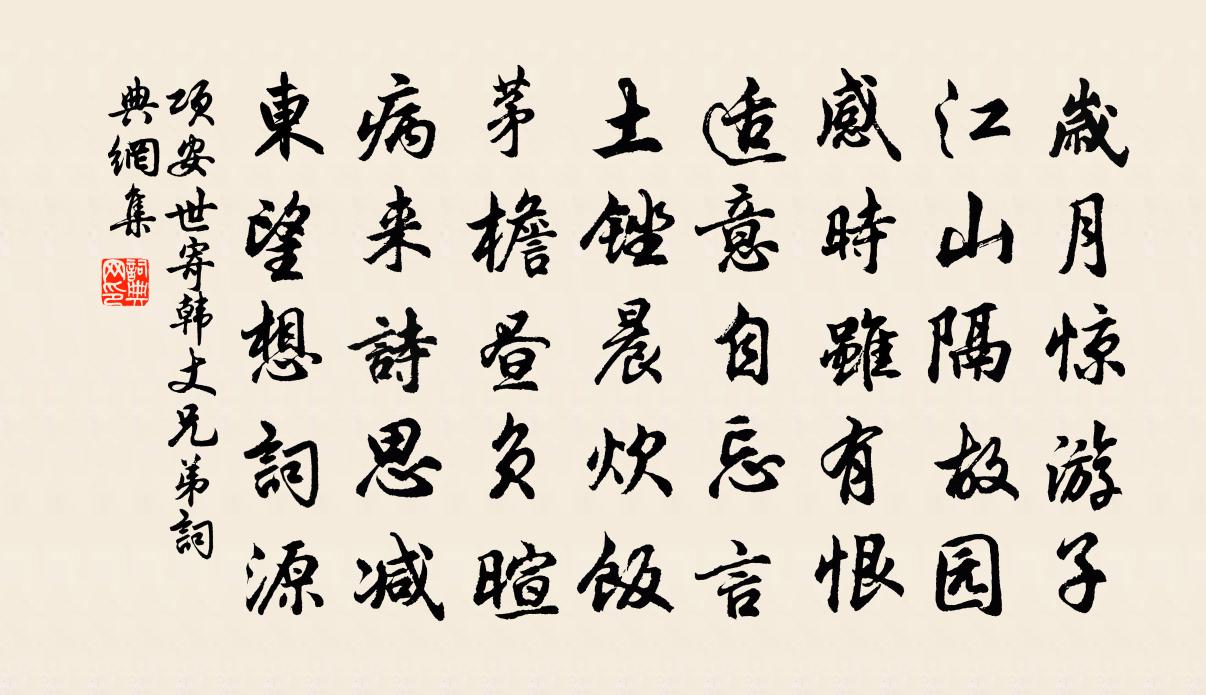 歳月惊游子
江山隔故园
感時雖有恨
适意自忘言
土銼晨炊飯
茅檐昼负暄
病来詩思减
東望想詞源
项安世寄韩丈兄弟詞
典網集
詞典
网印